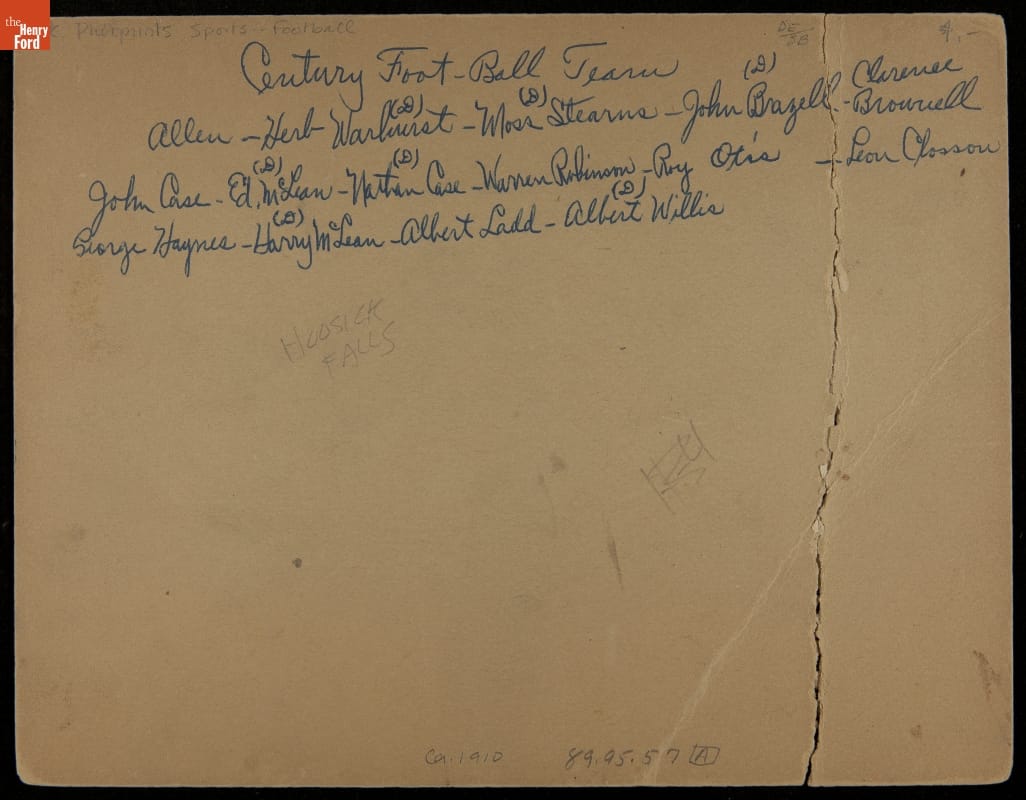 the Henry Ford
Photoprints Sports--Football
DE/SB
4.-
Century Foot-Ball Team
(D) (D) (D) Clarence
Allen - Herb Warhurst - Moss Stearns - John Brazell - Brownell
(D) (D)
John Case - Ed. McLean - Nathan Case - Warren Robinson - Roy Otis - Leon Closson
(D) (D)
George Haynes - Harry McLean - Albert Ladd - Albert Willis
HOOSICK
FALLS
Ca. 1910
89.95.57 A